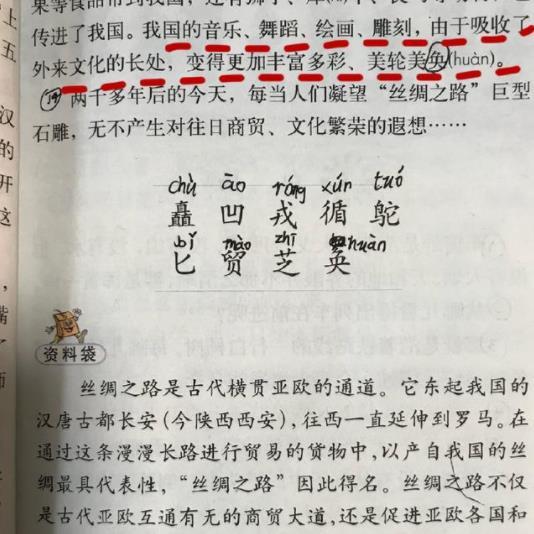 传进了我国。我国的音乐、舞蹈、绘画、雕刻，由于吸收了
外来文化的长处，变得更加丰富多彩、美轮美奂(huàn)。
⑭ 两千多年后的今天，每当人们凝望“丝绸之路”巨型
石雕，无不产生对往日商贸、文化繁荣的遐想……
chù āo róng xún tuó
矗 凹 戎 循 鸵
bǐ mào zhī huàn
匕 贸 芝 奂
资料袋
丝绸之路是古代横贯亚欧的通道。它东起我国的
汉唐古都长安（今陕西西安），往西一直延伸到罗马。在
通过这条漫漫长路进行贸易的货物中，以产自我国的丝
绸最具代表性，“丝绸之路”因此得名。丝绸之路不仅
是古代亚欧互通有无的商贸大道，还是促进亚欧各国和